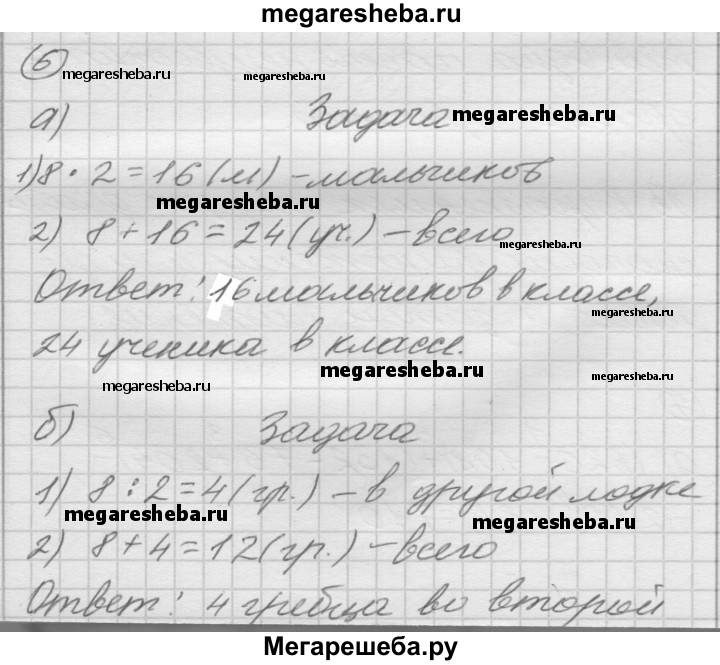 megaresheba.ru
6 megaresheba.ru megaresheba.ru
а) Задача megaresheba.ru
1) 8 · 2 = 16 (м) – мальчиков
megaresheba.ru
2) 8 + 16 = 24 (уч.) – всего
megaresheba.ru
Ответ: 16 мальчиков в классе,
megaresheba.ru
24 ученика в классе.
megaresheba.ru megaresheba.ru
megaresheba.ru
б) Задача
1) 8 : 2 = 4 (гр.) – в другой лодке
megaresheba.ru megaresheba.ru
2) 8 + 4 = 12 (гр.) – всего
Ответ: 4 гребца во второй
Мегарешеба.ру